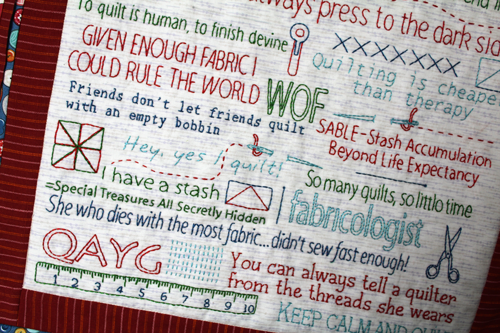 always press to the dark side
To quilt is human, to finish devine
GIVEN ENOUGH FABRIC I
COULD RULE THE WORLD
XXXXXXX
Quilting is cheaper
than therapy
WOF
Friends don't let friends quilt
with an empty bobbin
SABLE-Stash Accumulation
Beyond Life Expectancy
Hey, yes I quilt!
I have a stash
=Special Treasures All Secretly Hidden
So many quilts, so little time
fabricologist
She who dies with the most fabric...didn't sew fast enough!
QAYG
1 2 3 4 5 6 7 8 9 10
You can always tell a quilter
from the threads she wears
KEEP CALM AND